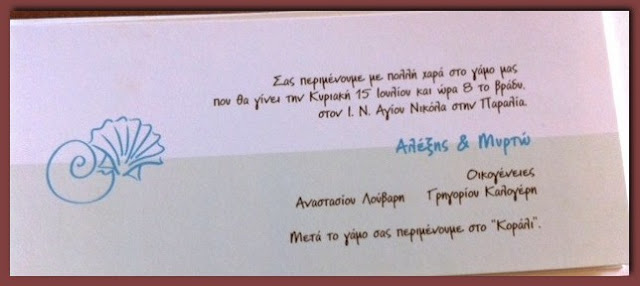 Σας περιμένουμε με πολλή χαρά στο γάμο μας
που θα γίνει την Κυριακή 15 Ιουλίου και ώρα 8 το βράδυ.
στον Ι. Ν. Αγίου Νικόλα στην Παραλία.
Αλέξης & Μυρτώ
Οικογένειες
Αναστασίου Λούβαρη Γρηγορίου Καλογέρη
Μετά το γάμο σας περιμένουμε στο "Κοράλι".